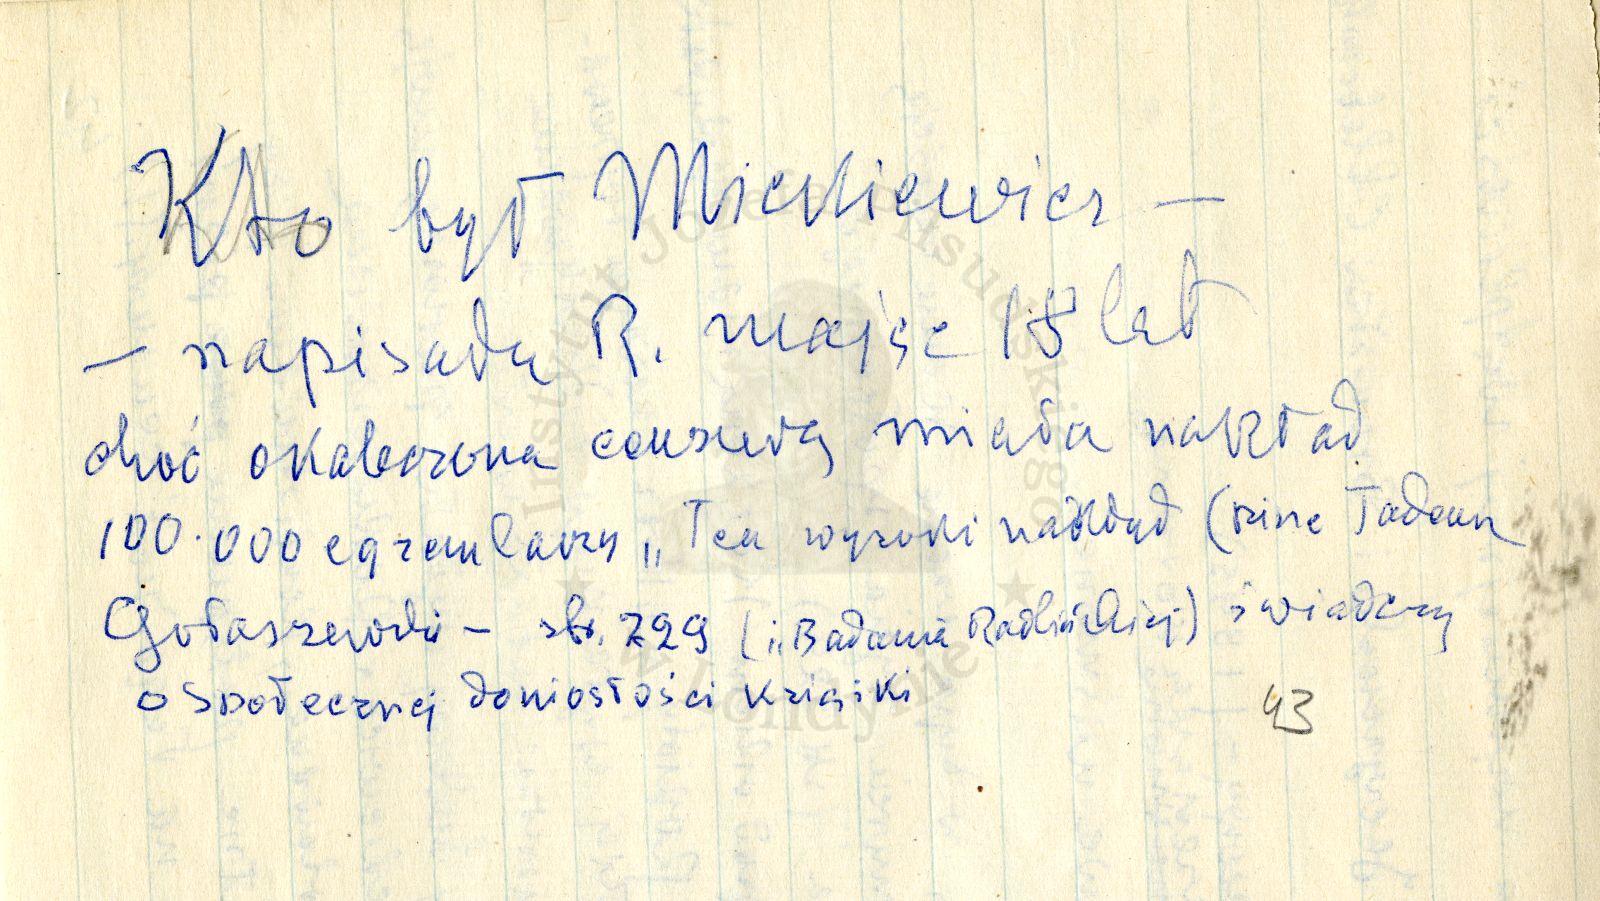 Kto był Mickiewicz –
– napisała R. mając 18 lat
choć okaleczona cenzurą miała nakład
100.000 egzemplarzy „Ten wysoki nakład (pisze Tadeusz
Gołaszewski – str. 229 (i „Badania Radlińskiej) świadczy
o społecznej doniosłości książki
43
Instytut Józefa Piłsudskiego
w Londynie